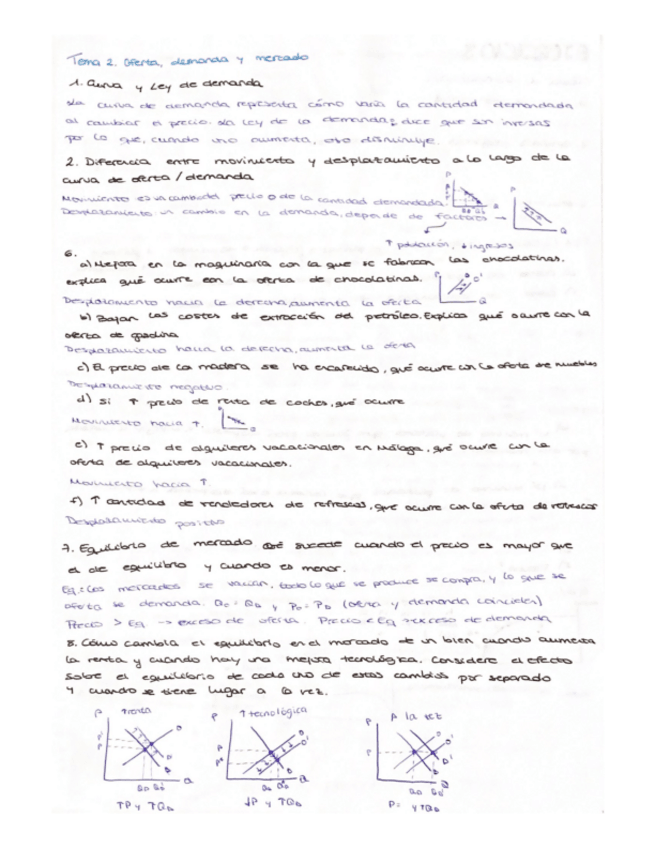 Tema 2. Oferta, demanda y mercado
1. Curva y Ley de demanda
La curva de demanda representa cómo varía la cantidad demandada
al cambiar el precio. La Ley de la demanda dice que son inversas
por lo que, cuando uno aumenta, otro disminuye.
2. Diferencia entre movimiento y desplazamiento a lo largo de la
curva de oferta / demanda
Movimiento es un cambio del precio o de la cantidad demandada.
Desplazamiento un cambio en la demanda, depende de factores →
↑ población, ingresos
6.
a) Mejora en la maquinaria con la que se fabrican las chocolatinas.
explica qué ocurre con la oferta de chocolatinas.
Desplazamiento hacia la derecha, aumenta la oferta
b) Bajan los costes de extracción del petróleo. Explica qué ocurre con la
oferta de gasolina
Desplazamiento hacia la derecha, aumenta la oferta
c) El precio de la madera se ha encarecido, qué ocurre con la oferta de muebles
Desplazamiento negativo.
d) Si ↑ precio de renta de coches, qué ocurre
Movimiento hacia ↑.
e) ↑ precio de alquileres vacacionales en Málaga, qué ocurre con la
oferta de alquileres vacacionales.
Movimiento hacia ↑
f) ↑ cantidad de vendedores de refrescos, que ocurre con la oferta de refrescos
Desplazamiento positivo
7. Equilibrio de mercado qué sucede cuando el precio es mayor que
el de equilibrio y cuando es menor.
Eq.: Los mercados se vacían, todo lo que se produce se compra, y lo que se
oferta se demanda. Qo = Qd y Po = PD (oferta y demanda coinciden)
Precio > Eq → exceso de oferta. Precio < Eq → exceso de demanda
8. Cómo cambia el equilibrio en el mercado de un bien cuando aumenta
la renta y cuando hay una mejora tecnológica. Considere el efecto
sobre el equilibrio de cada uno de estos cambios por separado
y cuando se tiene lugar a la vez.
↑ renta ↑ tecnológica A la vez
↑P y ↑Qo ↓P y ↑Qo P= y ↑Qo